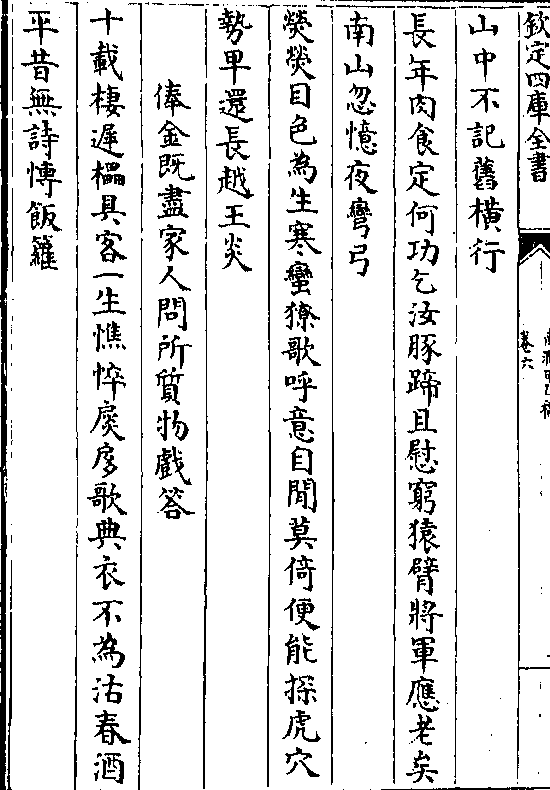 欽定四庫全書
卷六
山中不記舊橫行
長年肉食定何功乞汝豚蹄且慰窮猿臂將軍應老矣
南山忽憶夜彎弓
熒熒目色為生寒蠻獠歌呼意自閒莫倚便能探虎穴
勢卑還長越王炎
俸金既盡家人問所質物戲答
十載棲遲櫑具客一生憔悴扊扅歌典衣不為沽春酒
平昔無詩愽飯籮